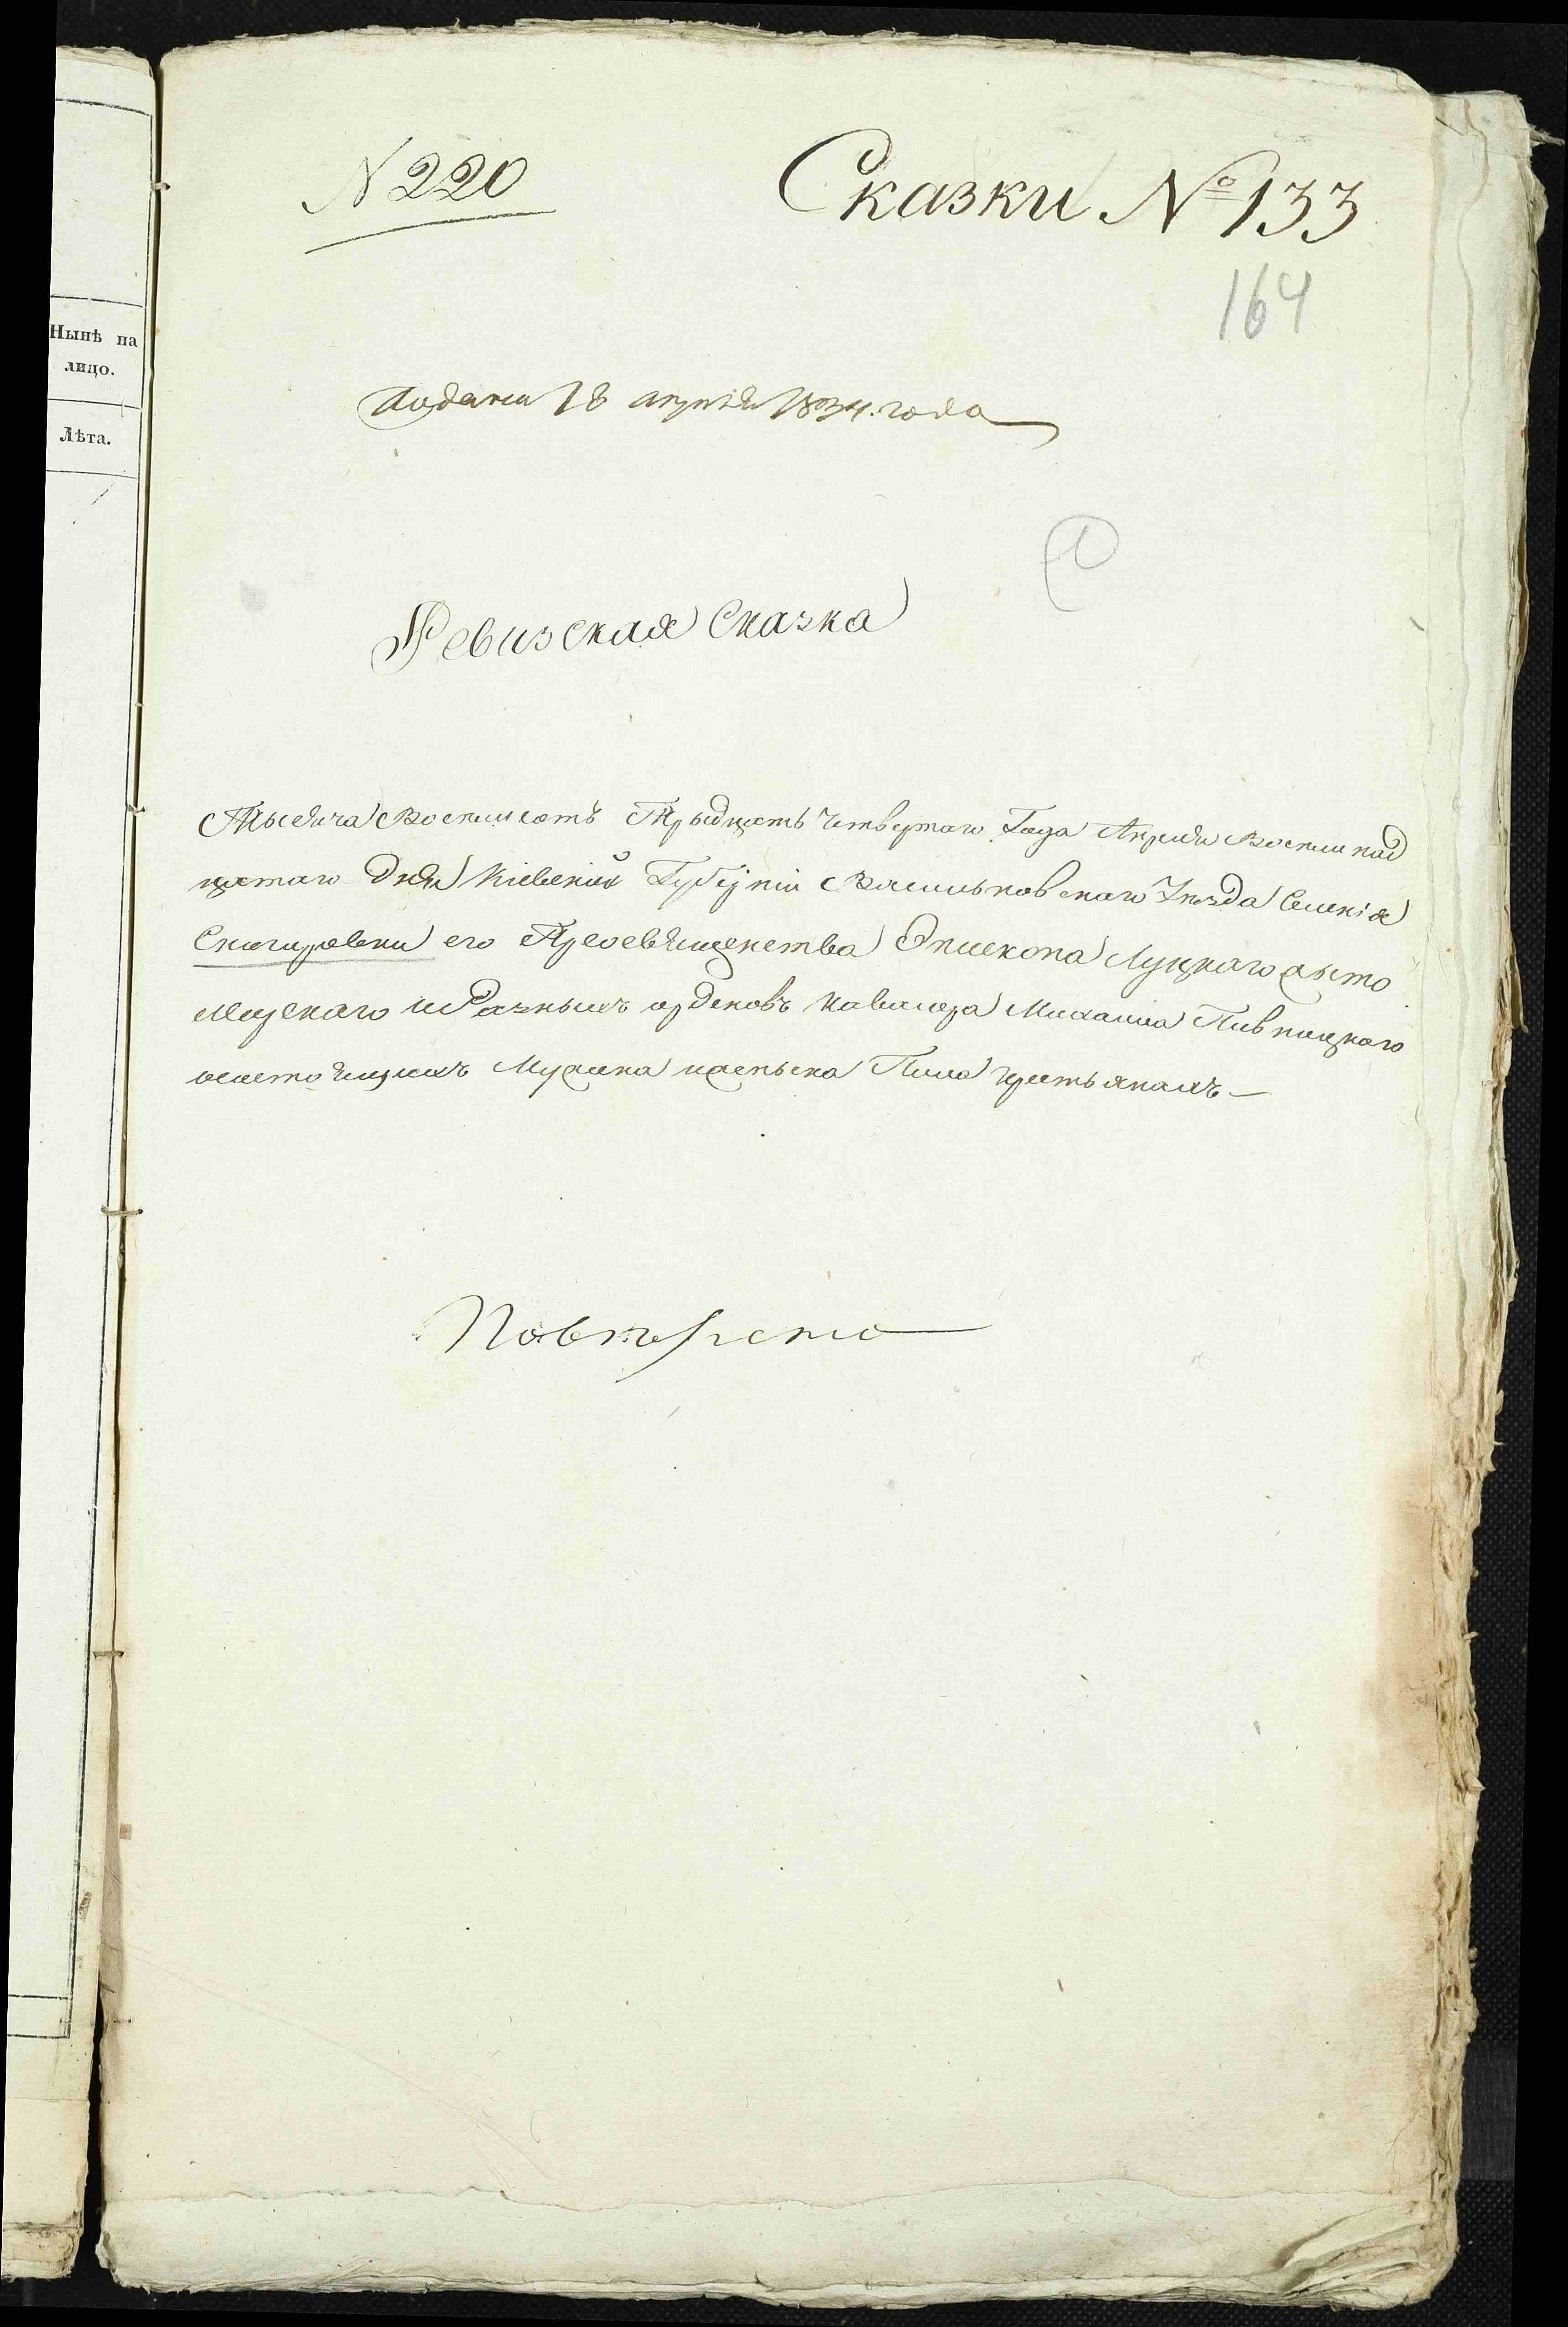 N 220
Сказки № 133
164
Подана 18 апреля 1834. года
1
Ревизская Сказка
Тысяча Восемсотъ Трыдцать Четвертаго Года Апреля Восемнад
цатаго Дня Кіевской Губерніи Васильковскаго Уезда Селенія
Скигиревки его Преосвященства Эпископа Луцкаго
и Разныхъ орденовъ Кавалера Михаила Пивницкаго
о состоящихъ Мужеска и женска Пола крестьянахъ
Повторено
Нынѣ на
лицо.
Лѣта.